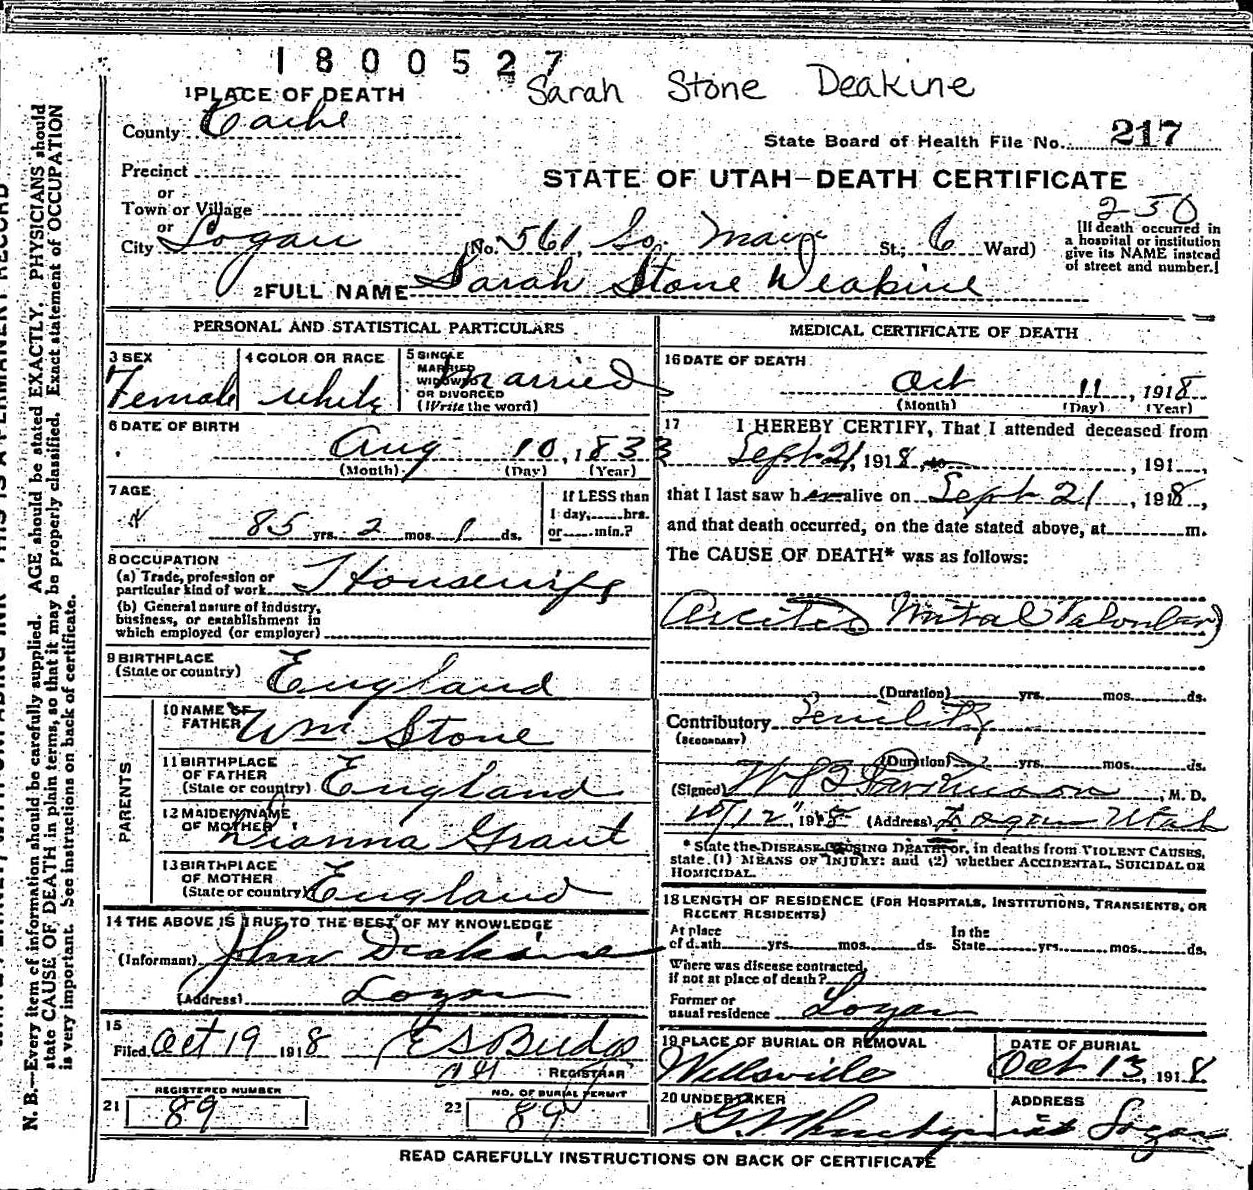 1800527
Sarah Stone Deakine
1 PLACE OF DEATH
County Cache
State Board of Health File No. 217
Precinct
or
Town or Village
or
STATE OF UTAH—DEATH CERTIFICATE
250
City Logan (No. 561 So. Main St.; 6 Ward)
[If death occurred in
a hospital or institution
give its NAME instead
of street and number.]
2 FULL NAME Sarah Stone Deakine
PERSONAL AND STATISTICAL PARTICULARS
3 SEX
Female
4 COLOR OR RACE
White
5 SINGLE
MARRIED
WIDOWED
OR DIVORCED
(Write the word)
Married
6 DATE OF BIRTH
Aug 10, 1833
(Month) (Day) (Year)
7 AGE
85 yrs. 2 mos. 1 ds.
If LESS than
1 day, hrs.
or min.?
8 OCCUPATION
(a) Trade, profession or
particular kind of work Housewife
(b) General nature of Industry,
business, or establishment in
which employed (or employer)
9 BIRTHPLACE
(State or country) England
PARENTS
10 NAME OF
FATHER Wm Stone
11 BIRTHPLACE
OF FATHER
(State or country) England
12 MAIDEN NAME
OF MOTHER Dianna Grant
13 BIRTHPLACE
OF MOTHER
(State or country) England
14 THE ABOVE IS TRUE TO THE BEST OF MY KNOWLEDGE
(Informant) John Deakine
(Address) Logan
15
Filed Oct 19 1918 E S Budge
REGISTRAR
REGISTERED NUMBER
21 89
NO. OF BURIAL PERMIT
22 89
MEDICAL CERTIFICATE OF DEATH
16 DATE OF DEATH
Oct 11, 1918
(Month) (Day) (Year)
17 I HEREBY CERTIFY, That I attended deceased from
Sept 21, 1918, to , 191 ,
that I last saw her alive on Sept 21, 1918,
and that death occurred, on the date stated above, at m.
The CAUSE OF DEATH* was as follows:
Mitral
(Duration) yrs. mos. ds.
Contributory Senility
(SECONDARY)
(Duration) yrs. mos. ds.
(Signed) W B Parkinson, M. D.
10/12", 1918 (Address) Logan Utah
* State the DISEASE CAUSING DEATH, or, in deaths from VIOLENT CAUSES,
state (1) MEANS OF INJURY; and (2) whether ACCIDENTAL, SUICIDAL OR
HOMICIDAL.
18 LENGTH OF RESIDENCE (FOR HOSPITALS, INSTITUTIONS, TRANSIENTS, OR
RECENT RESIDENTS)
At place
of death yrs. mos. ds.
In the
State yrs. mos. ds.
Where was disease contracted,
if not at place of death?
Former or
usual residence Logan
19 PLACE OF BURIAL OR REMOVAL
Wellsville
DATE OF BURIAL
Oct 13, 1918
20 UNDERTAKER
ADDRESS
Logan
READ CAREFULLY INSTRUCTIONS ON BACK OF CERTIFICATE
N. B.—Every item of information should be carefully supplied. AGE should be stated EXACTLY. PHYSICIANS should
state CAUSE OF DEATH in plain terms, so that it may be properly classified. Exact statement of OCCUPATION
is very important. See instructions on back of certificate.